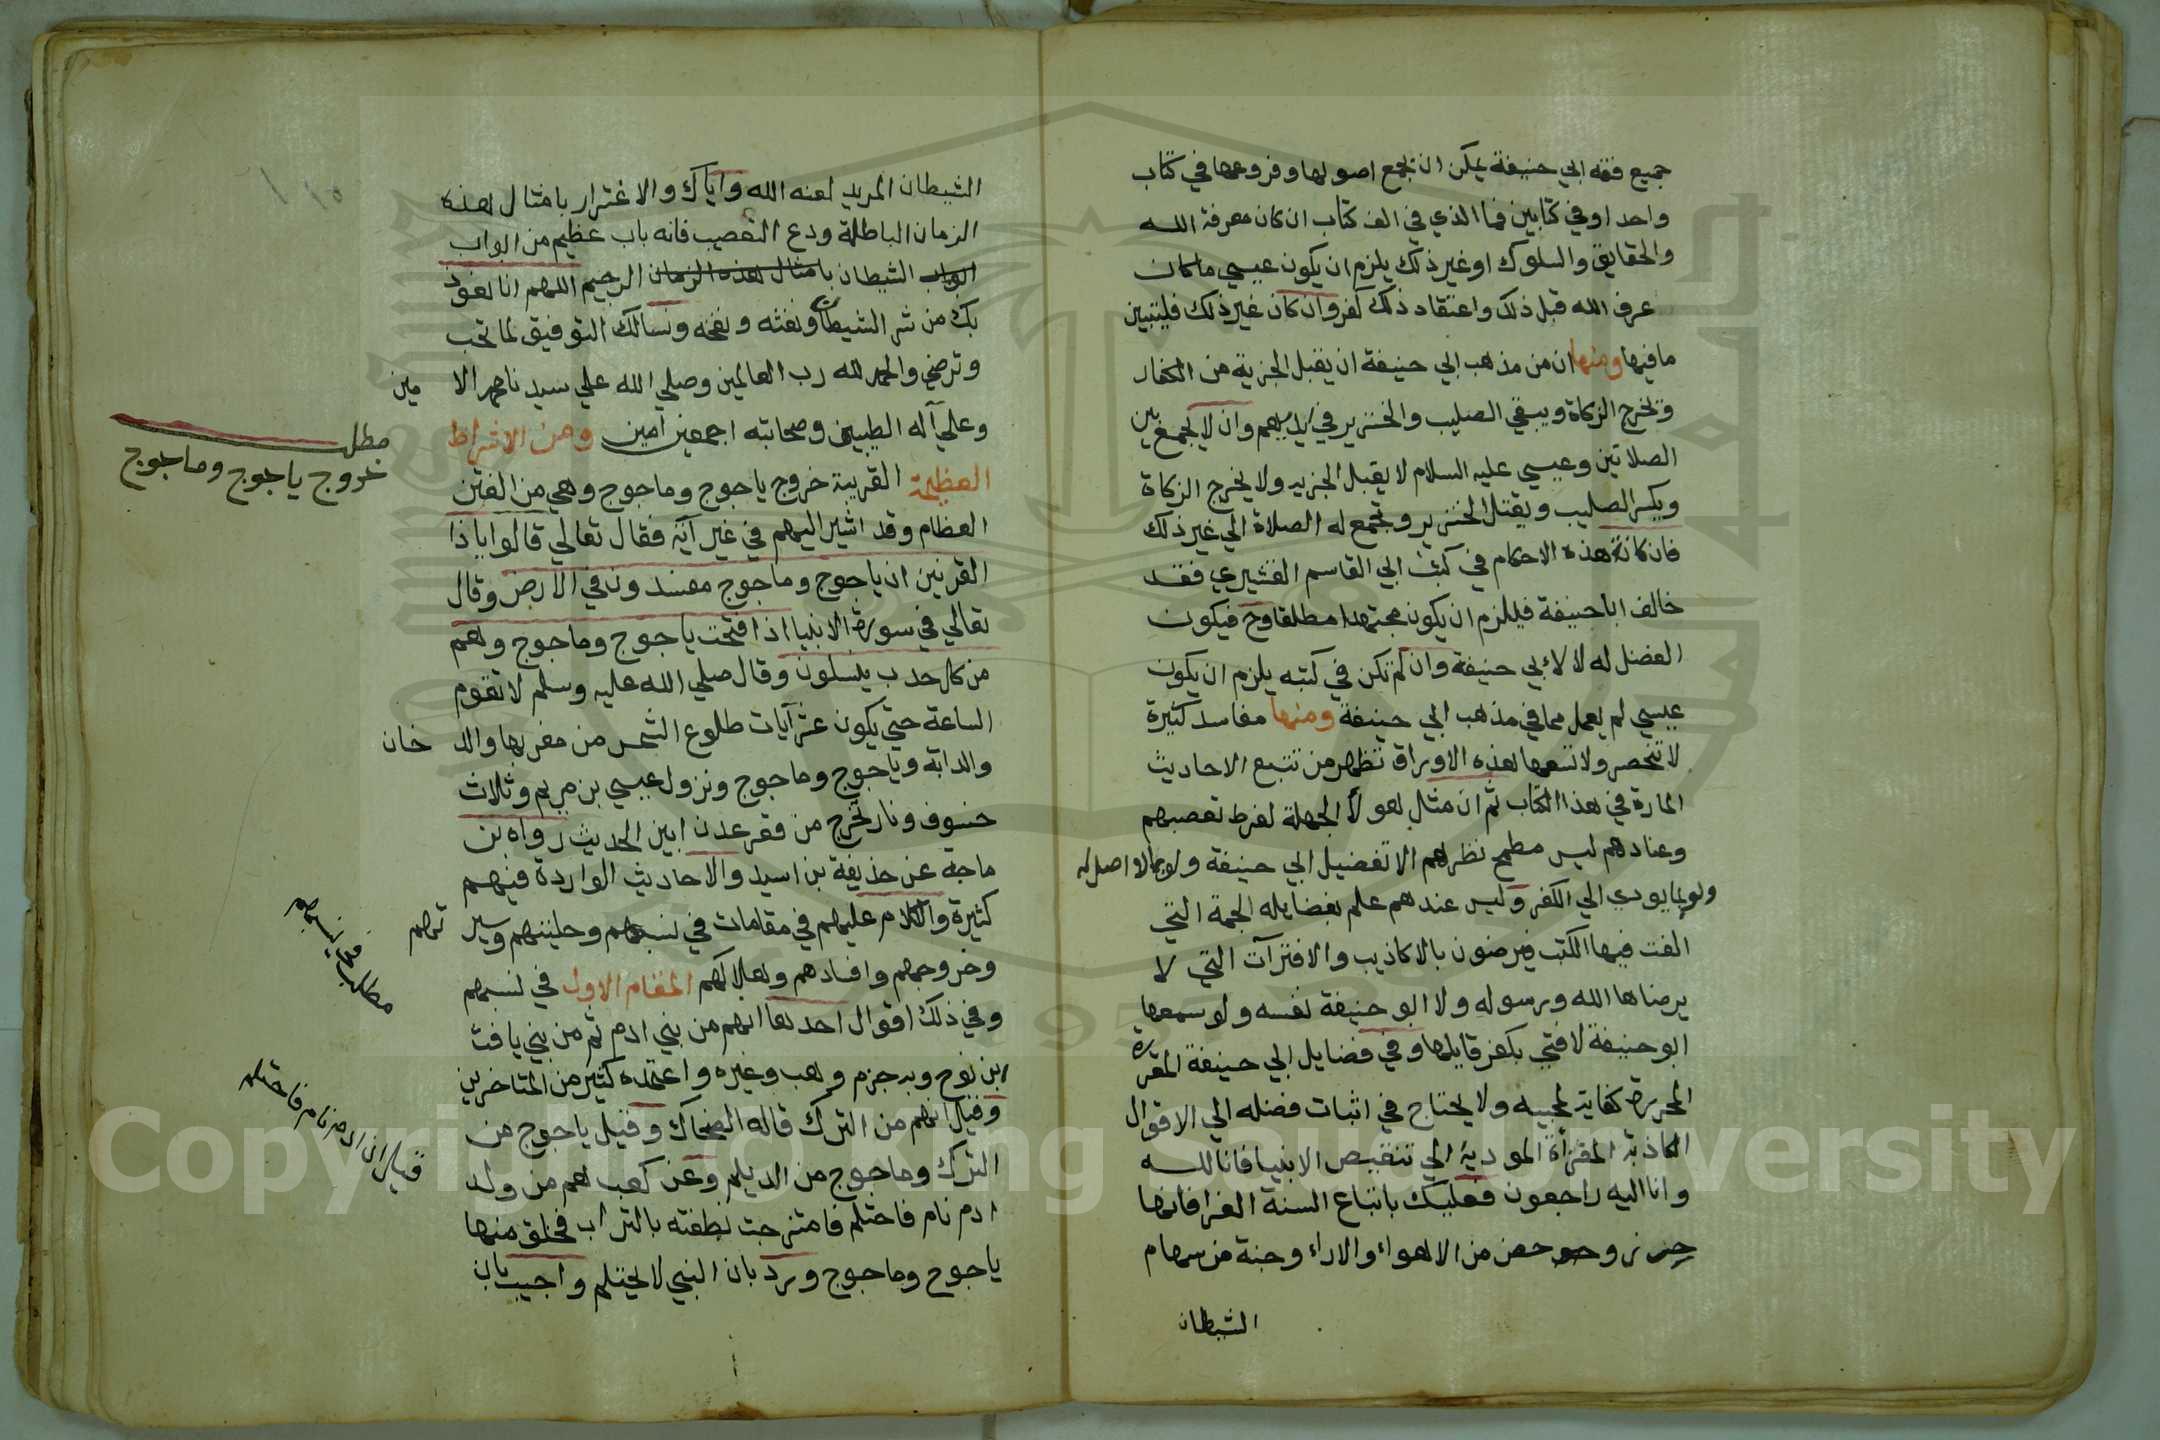 جميع فقه ابي حنيفة يمكن ان تجمع اصولها وفروعها في كتاب
واحد او في كتابين فما الذي في الف كتاب ان كان معرفة الله
والحقايق والسلوك او غير ذلك يلزم ان يكون عيسي ما كان
عرف الله قبل ذلك واعتقاد ذلك كفر وان كان غير ذلك فليتبين
ما فيها ومنها ان من مذهب ابي حنيفة ان يقبل الجزية من الكفار
وتخرج الزكاة ويبقي الصليب والخنزير في ايديهم وان لا يجمع بين
الصلاتين وعيسي عليه السلام لا يقبل الجزيه ولا يخرج الزكاة
ويكسر الصليب ويقتل الخنزير وتجمع له الصلاة الي غير ذلك
فان كانة هذه الاحكام في كتب ابي القاسم القشيري فقد
خالف ابا حنيفة فيلزم ان يكون مجتهدا مطلقا وح فيكون
الفضل له لا لابي حنيفة وان لم تكن في كتبه يلزم ان يكون
عيسي لم يعمل مما في مذهب ابي حنيفة ومنها مفاسد كثيرة
لا تنحصر ولا تسعها هذه الاوراق تظهر من تتبع الاحاديث
المارة في هذا الكتاب ثم ان مثل هولا الجهلة لفرط تعصبهم
وعنادهم ليس مطمح نظرهم الا تفضيل ابي حنيفة ولو بما لا اصل له
ولو بما يودي الي الكفر وليس عندهم علم بفضايله الجمة التي
الفت فيها الكتب فيرضون بالاكاذيب والافترآت التي لا
يرضاها الله ورسوله ولا ابو حنيفة نفسه ولو سمعها
ابو حنيفة لافتي بكفر قايلها وفي فضايل ابي حنيفة المقررة
المحررة كفاية لمحبيه ولا يحتاج في اثبات فضله الي الاقوال
الكاذبة المفترأة المودية الي تنقيص الانبيا فانا لله
وانا اليه راجعون فعليك باتباع السنة الغرا فانها
حرز وحصن من الاهواء والاراء وجنة من سهام
الشيطان
الشيطان المريد لعنه الله واياك والاغترار بامثال هذه
الزمان الباطلة ودع التعصب فانه باب عظيم من ابواب
ابواب الشيطان بامثال هذه الزمان الرجيم اللهم انا نعوذ
بك من شر الشيطان ونفثه ونفخه ونسالك التوفيق لما تحب
وترضي والحمد لله رب العالمين وصلي الله علي سيدنا محمد الامين
وعلي آله الطيبين وصحابته اجمعين امين ومن الاشراط
العظيمة القريبة خروج ياجوج وماجوج وهي من الفتن
العظام وقد اشير اليهم في غير آية فقال تعالي قالوا يا ذا
القرنين ان ياجوج وماجوج مفسدون في الارض وقال
تعالي في سورة الانبيا اذا فتحت ياجوج وماجوج وهم
من كل حدب ينسلون وقال صلي الله عليه وسلم لا تقوم
الساعة حتي يكون عشر آيات طلوع الشمس من مغربها والدخان
والدابة وياجوج وماجوج ونزول عيسي بن مريم وثلاث
خسوف ونار تخرج من قعر عدن ابين الحديث رواه بن
ماجه عن حذيفة بن اسيد والاحاديث الواردة فيهم
كثيرة والكلام عليهم في مقامات في نسبهم وحليتهم وسيرتهم
وخروجهم وافسادهم وهلاكهم المقام الاول في نسبهم
وفي ذلك اقوال احدها انهم من بني ادم ثم من بني يافث
ابن نوح وبه جزم وهب وغيره واعتمده كثير من المتاخرين
وقيل انهم من الترك قاله الضحاك وقيل ياجوج من
الترك وماجوج من الديلم وعن كعب هم من ولد
ادم نام فاحتلم فامتزجت نطفته بالتراب فخلق منها
ياجوج وماجوج ورد بان النبي لا يحتلم واجيب بان
مطلب
خروج ياجوج وماجوج
مطلب في نسبهم
قيل ان ادم نام فاحتلم
Copyright © King Saud University
1957